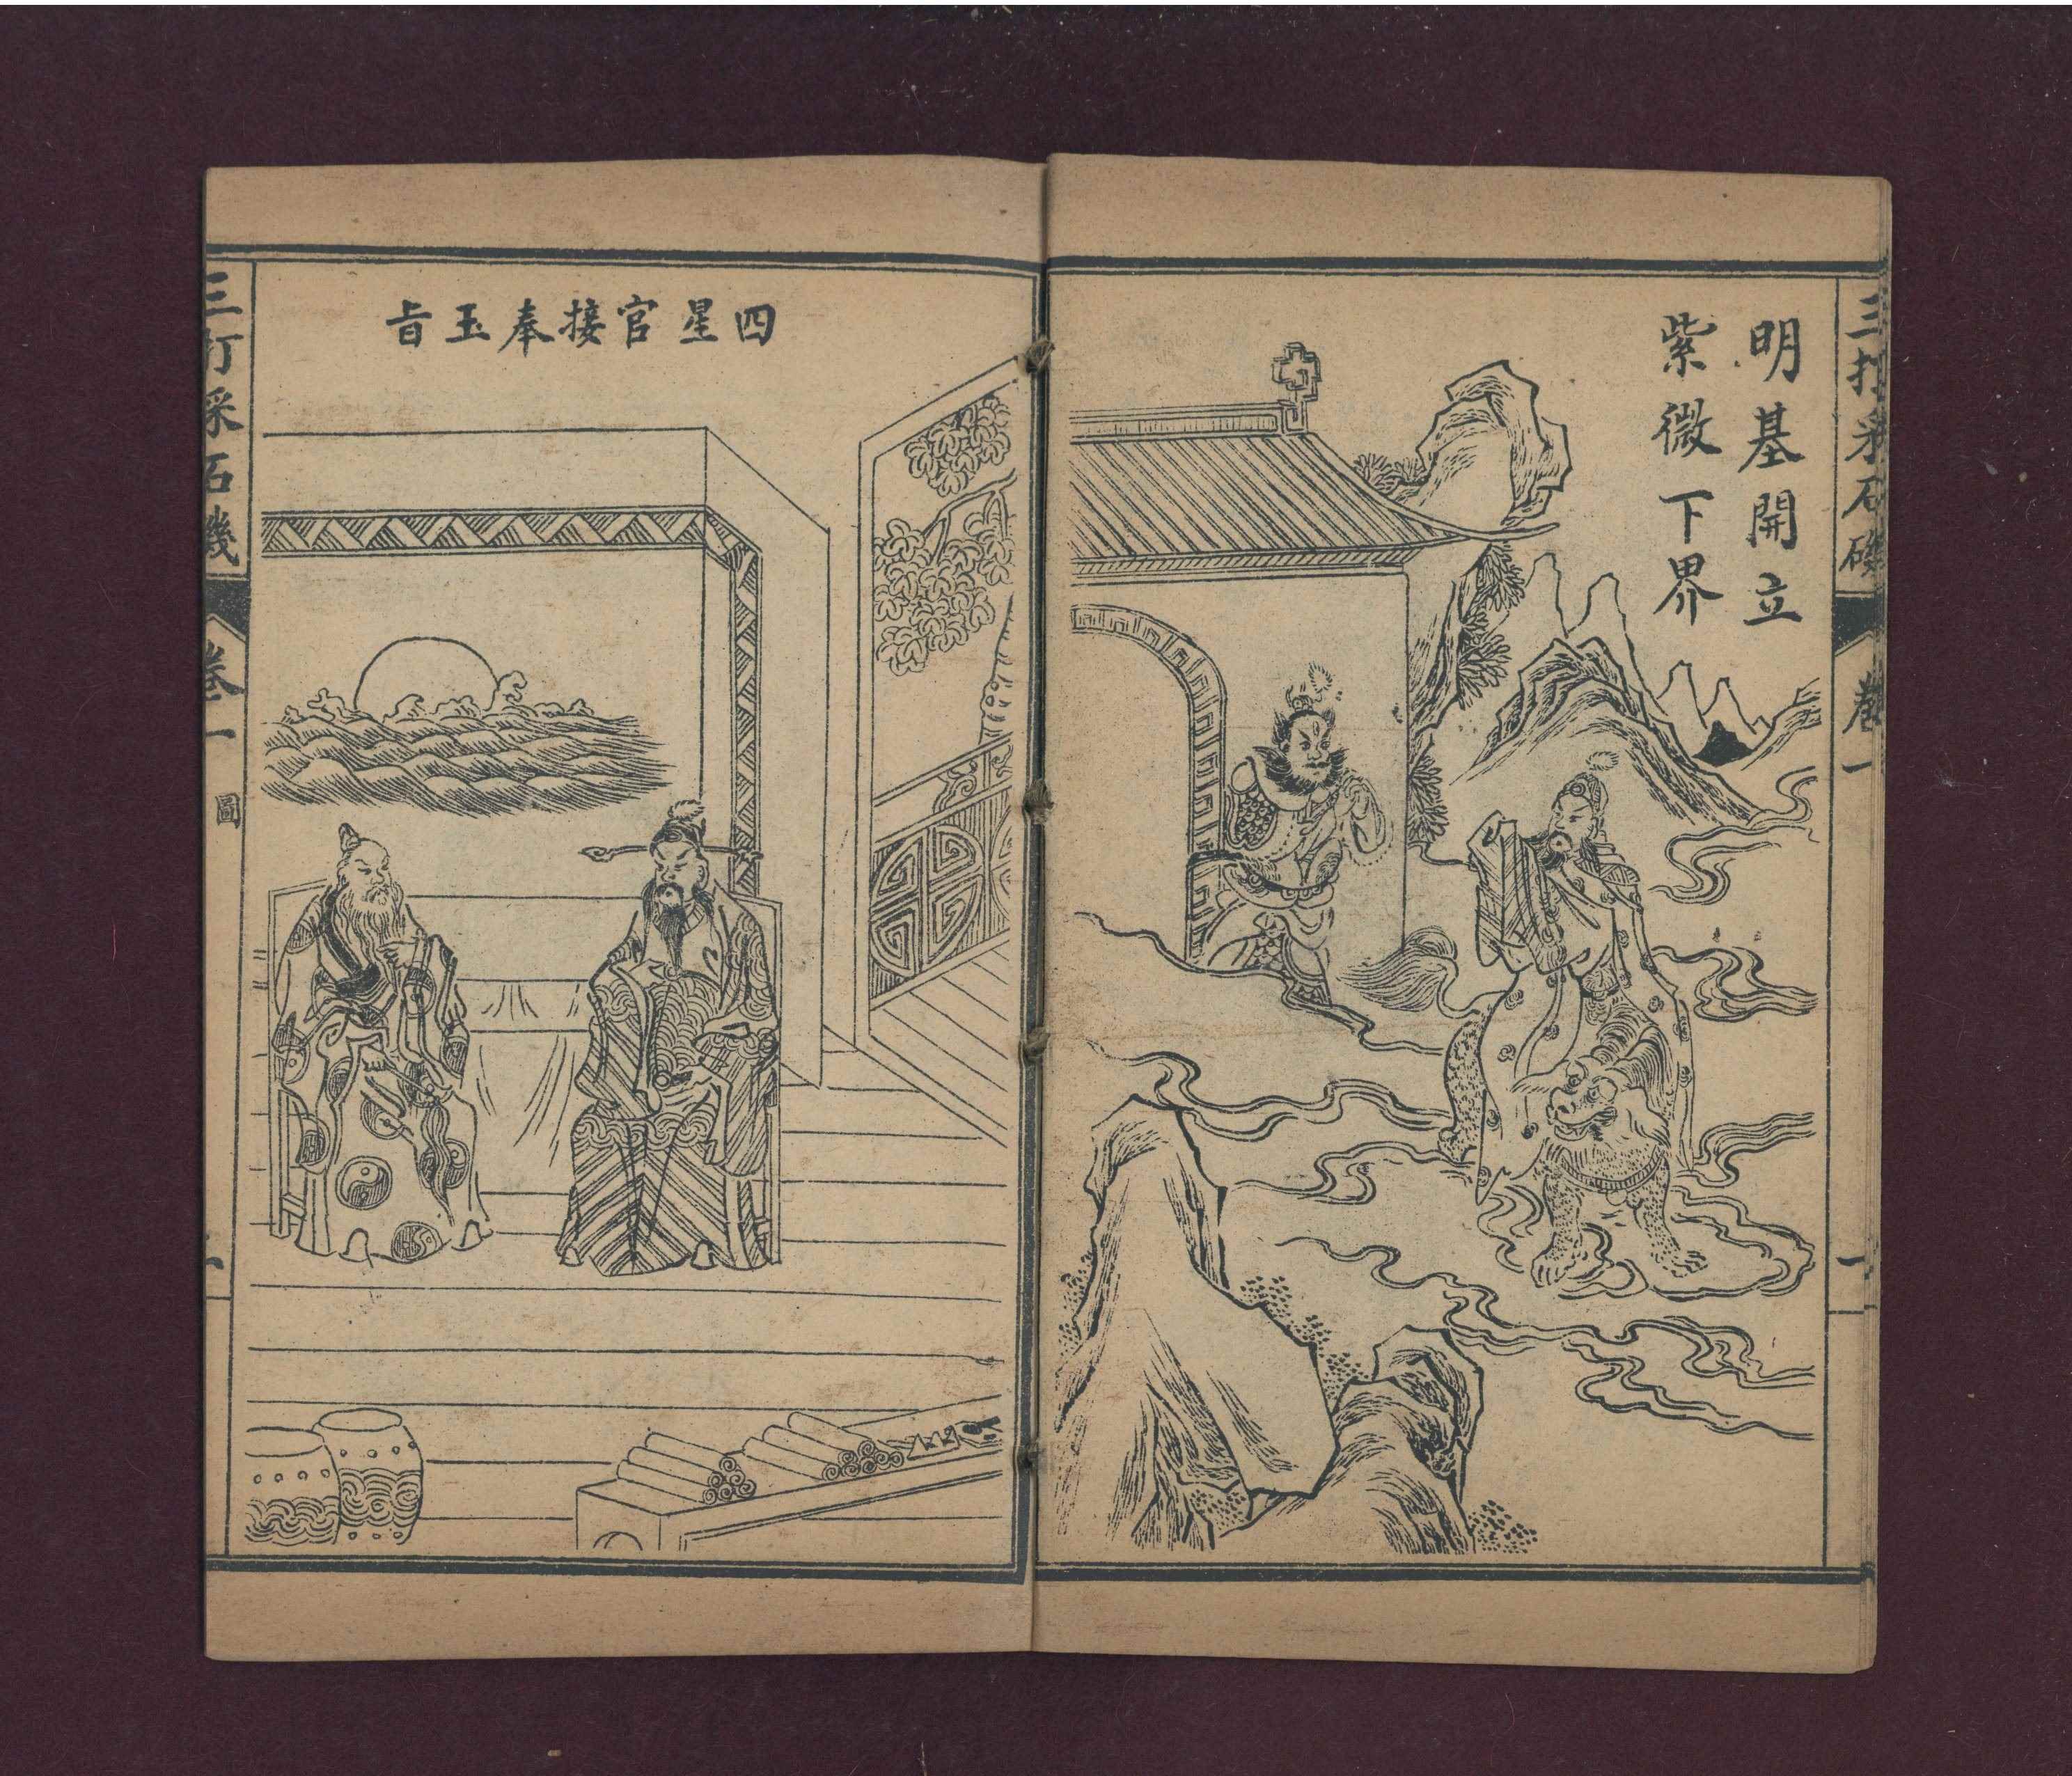 三打采石磯
卷一
一
明基開立
紫微下界
四星官接奉玉旨
三打採石磯
卷一
圖